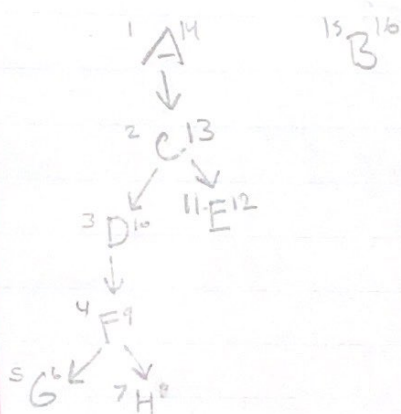 1 A 14 15 B 16
2 C 13
3 D 10 11 E 12
4 F 9
5 G 6 7 H 8